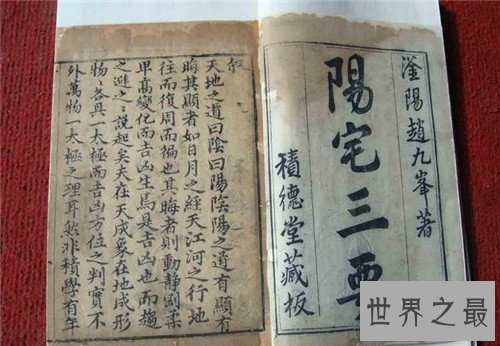 滏陽趙九峯著
陽宅三要
積德堂藏板
敘
天地之道曰陰曰陽陰陽之道有顯有
晦其顯者如日月之經天江河之行地
往而復周而徧也其晦者則動靜剛柔
卑高變化而吉凶生焉具吉凶也而趨
之避之〻說起矣夫在天成象在地成形
物〻各具一太極而吉凶方位之判實不
外萬物一太極之理耳然非積學有年
世界之最